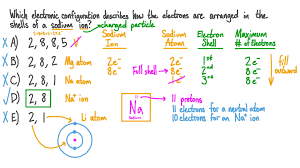 Which electronic configuration describes how the electrons are arranged in the
shells of a sodium ion? charged particle
X A) 2, 8, 8, 5
X B) 2, 8, 2 Mg atom
X C) 2, 8, 1 Na atom
✓ D) 2, 8 Na⁺ ion
X E) 2, 1 Li atom
Sodium Ion
2e⁻
8e⁻
Full shell
Sodium Atom
2e⁻
8e⁻
1e⁻
Electron Shell
1st
2nd
3rd
Maximum # of electrons
2e⁻
8e⁻
8e⁻
fill outward
11
Na
Sodium
11 protons
11 electrons for a neutral atom
10 electrons for an Na⁺ ion